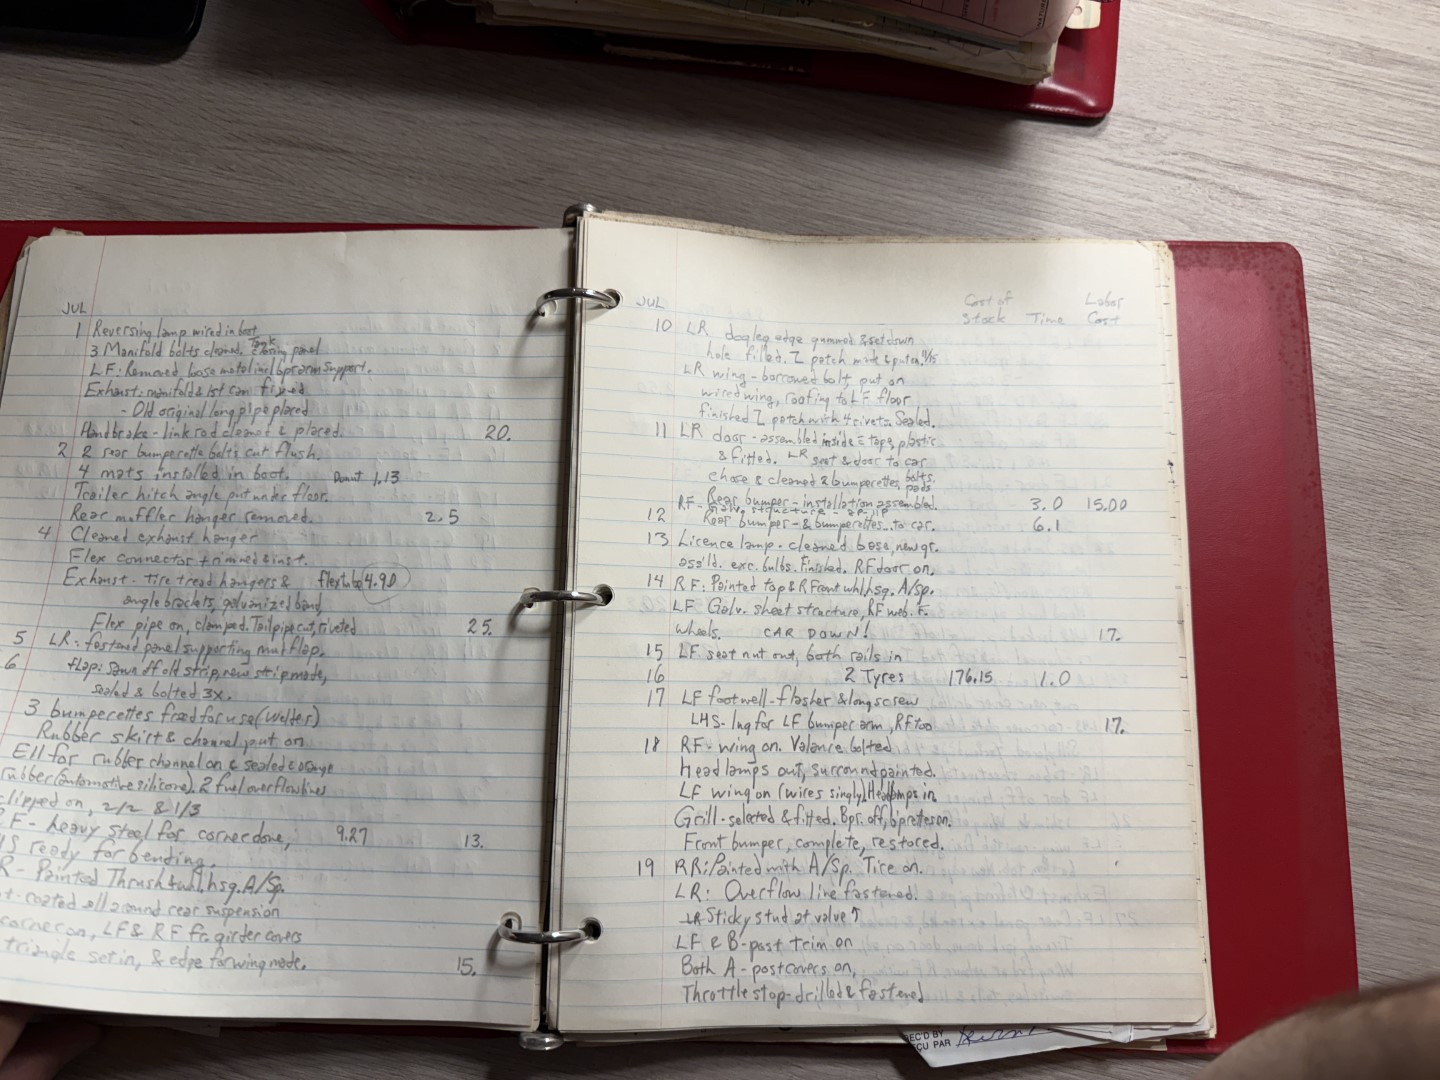 JUL
1 Reversing lamp wired in boot
3 Manifold bolts cleaned. Tank closing panel
LF: Removed loose metal inel bpr arm support.
Exhaust: manifold & 1st can fixed
- Old original long pipe placed
Handbrake - link rod cleaned & placed. 20.
2 2 rear bumperette bolts cut flush.
4 mats installed in boot. Donut 1.13
Trailer hitch angle put under floor.
Rear muffler hanger removed. 2.5
4 Cleaned exhaust hanger
Flex connector trimmed & inst.
Exhaust - Tire tread hangers & flextube 4.90
angle brackets, galvanized band,
Flex pipe on, clamped. Tailpipe cut, riveted 25.
5 LR: fastened panel supporting mud flap.
6 flap: Sawn off old strip, new strip made,
sealed & bolted 3x.
3 bumperettes freed for use (Welder)
Rubber skirt & channel put on
Ell for rubber channel on & sealed c orange
rubber (automotive silicone). 2 fuel overflow lines
clipped on, 2/2 & 1/3
F - heavy steel for corner done, 9.27 13.
ready for bending.
R - Painted Thrush & whl.hsg. A/Sp.
coated all around rear suspension
corner on, LF & RF fr. girder covers
triangle set in, & edge for wing made. 15.
JUL Cost of Stock Time Labor Cost
10 LR dogleg edge gummed & set down
hole filled. Z patch made & put on.
LR wing - borrowed bolt, put on
wired wing, roofing to LF floor.
finished Z patch with 4 rivets. Sealed.
11 LR door - assembled inside c tape, plastic
& fitted. LR seat & door to car
chose & cleaned 2 bumperettes, bolts, pads
Rear bumper - installation assembled. 3.0 15.00
12 RF - structure
Rear bumper - & bumperettes to car. 6.1
13 Licence lamp - cleaned base, new gr.
ass'ld. exc. bulbs. Finished. RF door on.
14 RF: Painted top & RFront whl.hsg. A/Sp.
LF Galv. sheet structure, RF web. F.
wheels. CAR DOWN! 17.
15 LF seat nut out, both rails in
16 2 Tyres 176.15 1.0
17 LF footwell - flasher & long screw
LHS - lug for LF bumper arm, RF too 17.
18 RF - wing on. Valance bolted
Head lamps out, surround painted.
LF wing on (wires singly). Headlamps in.
Grill - selected & fitted. Bpr. off, bprettes on.
Front bumper, complete, restored.
19 RR: Painted with A/Sp. Tire on.
LR: Overflow line fastened.
LR Sticky stud at valve ↑
LF & B-post trim on
Both A-postcovers on,
Throttle stop - drilled & fastened
REC'D BY